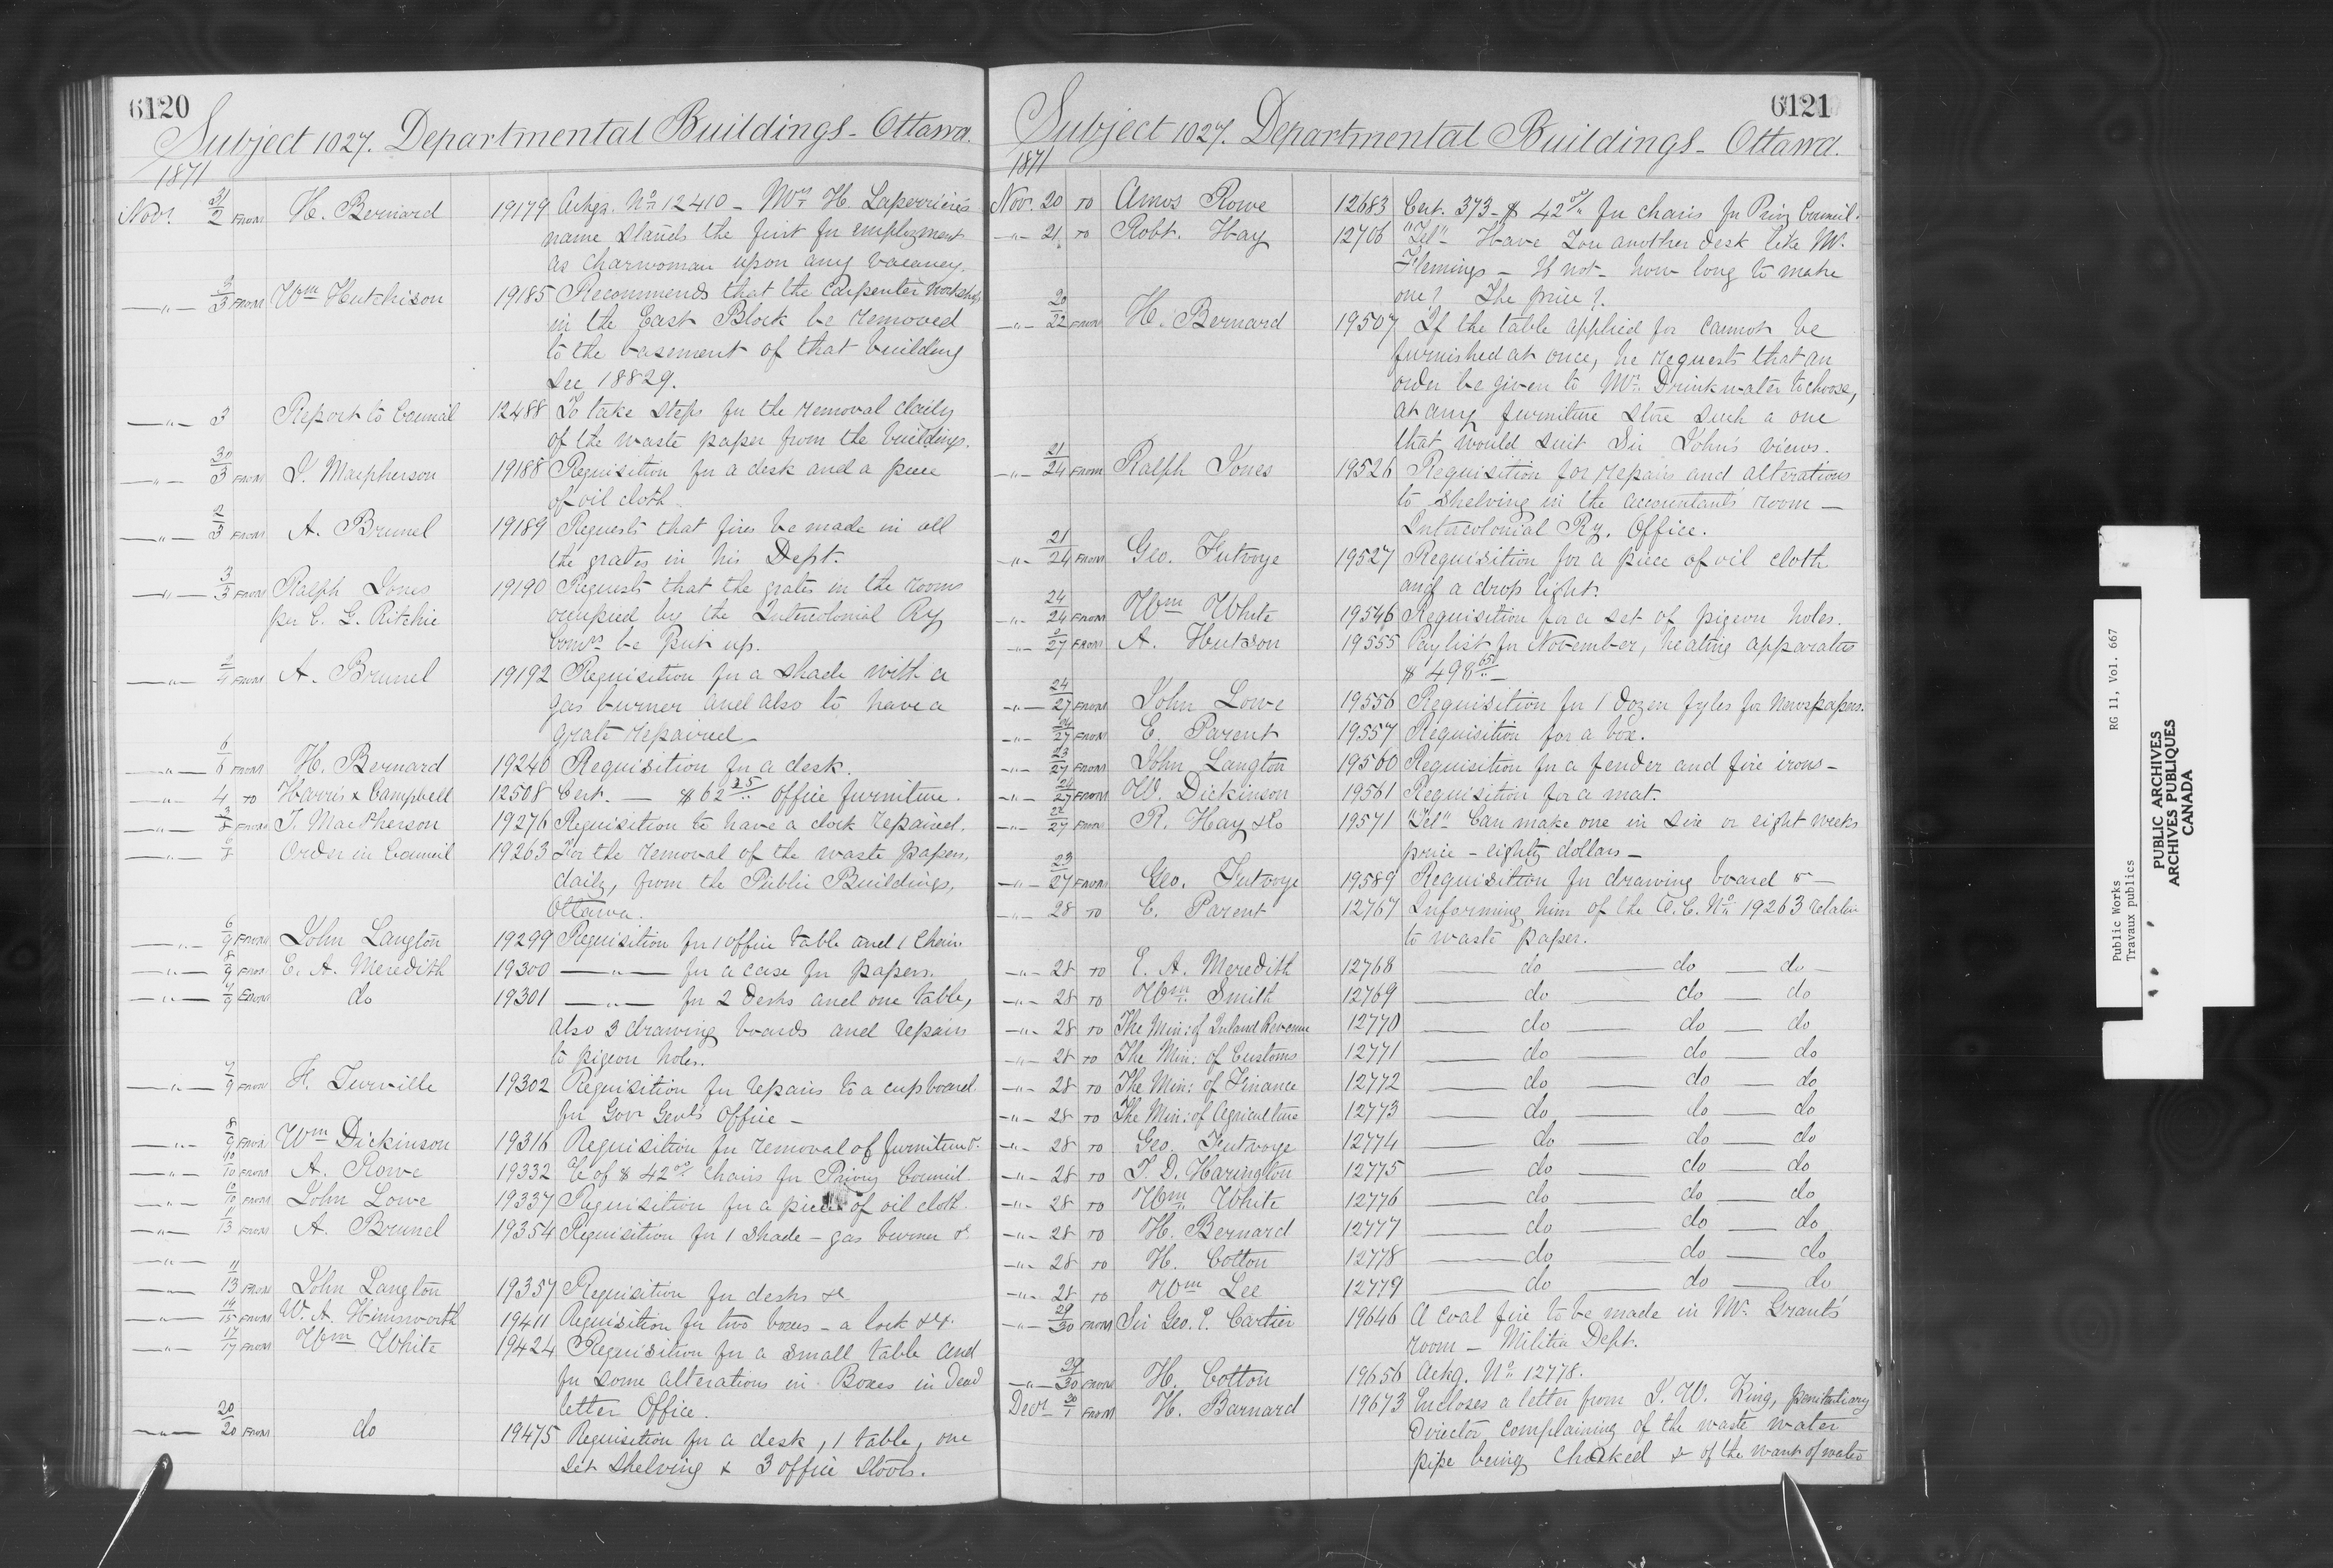 6120
Subject 1027. Departmental Buildings - Ottawa.
1871
Novr. 31/2 FROM H. Bernard 19179 Ackgg. No 12410 - Mrs H. Laperrière's
name stands the first for employment
as charwoman upon any vacancy.
-"- 3/3 FROM Wm Hutchison 19185 Recommends that the Carpenter workshop
in the East Block be removed
to the basement of that building
See 18829.
-"- 3 Report to Council 12488 To take steps for the removal daily
of the waste paper from the buildings.
-"- 30/3 FROM D. Macpherson 19188 Requisition for a desk and a piece
of oil cloth.
-"- 2/3 FROM A. Brunel 19189 Requests that fires be made in all
the grates in his Dept.
-"- 3/3 FROM Ralph Jones 19190 Requests that the grates in the rooms
per C. G. Ritchie occupied by the Intercolonial Ry
Comrs be put up.
-"- 2/4 FROM A. Brunel 19192 Requisition for a shade with a
gas burner and also to have a
grate repaired -
-"- 6/6 FROM H. Bernard 19240 Requisition for a desk.
-"- 4 TO Harris & Campbell 12508 Cert. - $62 25 office furniture.
-"- FROM T. MacPherson 19276 Requisition to have a clock repaired.
-"- 6/8 Order in Council 19263 For the removal of the waste papers,
daily, from the Public Buildings,
Ottawa.
-"- 6/9 FROM John Langton 19299 Requisition for 1 office table and 1 Chair
-"- 8/9 FROM E. A. Meredith 19300 -"- for a case for papers.
-"- 7/9 FROM do 19301 -"- for 2 Desks and one table,
also 3 drawing boards and repairs
to pigeon holes.
-"- 7/9 FROM H. Turville 19302 Requisition for repairs to a cupboard
for Gov Genl's Office -
-"- 8/9 FROM Wm Dickinson 19316 Requisition for removal of furniture.
-"- 10/10 FROM A. Rowe 19332 % of $42 00 Chairs for Privy Council.
-"- 10/10 FROM John Lowe 19337 Requisition for a piece of oil cloth.
-"- 11/13 FROM A. Brunel 19354 Requisition for 1 shade - gas burner &
-"-
-"- 11/13 FROM John Langton 19357 Requisition for desks &c
-"- 14/15 FROM W. A. Himsworth 19411 Requisition for two boxes - a lock &c.
-"- 17/17 FROM Wm White 19424 Requisition for a small table and
for some alterations in Boxes in Dead
letter Office.
-"- 20/20 FROM do 19475 Requisition for a desk, 1 table, one
set shelving & 3 office stools.
6121
Subject 1027. Departmental Buildings - Ottawa.
1871
Nov. 20 TO Amos Rowe 12683 Cert. 373 - $42 for chairs for Privy Council.
-"- 21 TO Robt. Hay 12706 "Tel" - Have you another desk like Mr.
Flemings - If not - how long to make
one? The price?
-"- 20/22 FROM H. Bernard 19507 If the table applied for cannot be
furnished at once, he requests that an
order be given to Mr. Drinkwater to choose,
at any furniture store such a one
that would suit Sir John's views.
-"- 21/24 FROM Ralph Jones 19526 Requisition for repairs and alterations
to shelving in the accountants room -
Intercolonial Ry. Office.
-"- 21/24 FROM Geo. Futvoye 19527 Requisition for a piece of oil cloth
and a drop light.
-"- 24/24 FROM Wm White 19546 Requisition for a set of pigeon holes.
-"- 27 FROM A. Hutson 19555 Paylist for November, heating apparatus
$498 65 -
-"- 24/27 FROM John Lowe 19556 Requisition for 1 dozen fyles for Newspapers.
-"- 24/27 FROM E. Parent 19557 Requisition for a box.
-"- 23/27 FROM John Langton 19560 Requisition for a fender and fire irons -
-"- 24/27 FROM W. Dickinson 19561 Requisition for a mat.
-"- 22/27 FROM R. Hay & Co 19571 "Tel" Can make one in six or eight weeks
price - eighty dollars -
-"- 23/27 FROM Geo. Futvoye 19589 Requisition for drawing board &
-"- 28 TO E. Parent 12767 Informing him of the O.C. No 19263 relative
to waste paper.
-"- 28 TO E. A. Meredith 12768 do do do
-"- 28 TO Wm. Smith 12769 do do do
-"- 28 TO The Min: of Inland Revenue 12770 do do do
-"- 28 TO The Min: of Customs 12771 do do do
-"- 28 TO The Min: of Finance 12772 do do do
-"- 28 TO The Min: of Agriculture 12773 do do do
-"- 28 TO Geo. Futvoye 12774 do do do
-"- 28 TO T. D. Harington 12775 do do do
-"- 28 TO Wm. White 12776 do do do
-"- 28 TO H. Bernard 12777 do do do
-"- 28 TO H. Cotton 12778 do do do
-"- 28 TO Wm Lee 12779 do do do
-"- 29/30 FROM Sir Geo. E. Cartier 19646 A coal fire to be made in Mr. Grant's
room - Militia Dept.
-"- 29/30 FROM H. Cotton 19656 Ackg. No 12778.
Decr 30/1 FROM H. Barnard 19673 Encloses a letter from J. W. King, penitentiary
Director complaining of the waste water
pipe being choaked & of the want of water
Public Works RG 11, Vol. 667
Travaux publics
PUBLIC ARCHIVES
ARCHIVES PUBLIQUES
CANADA